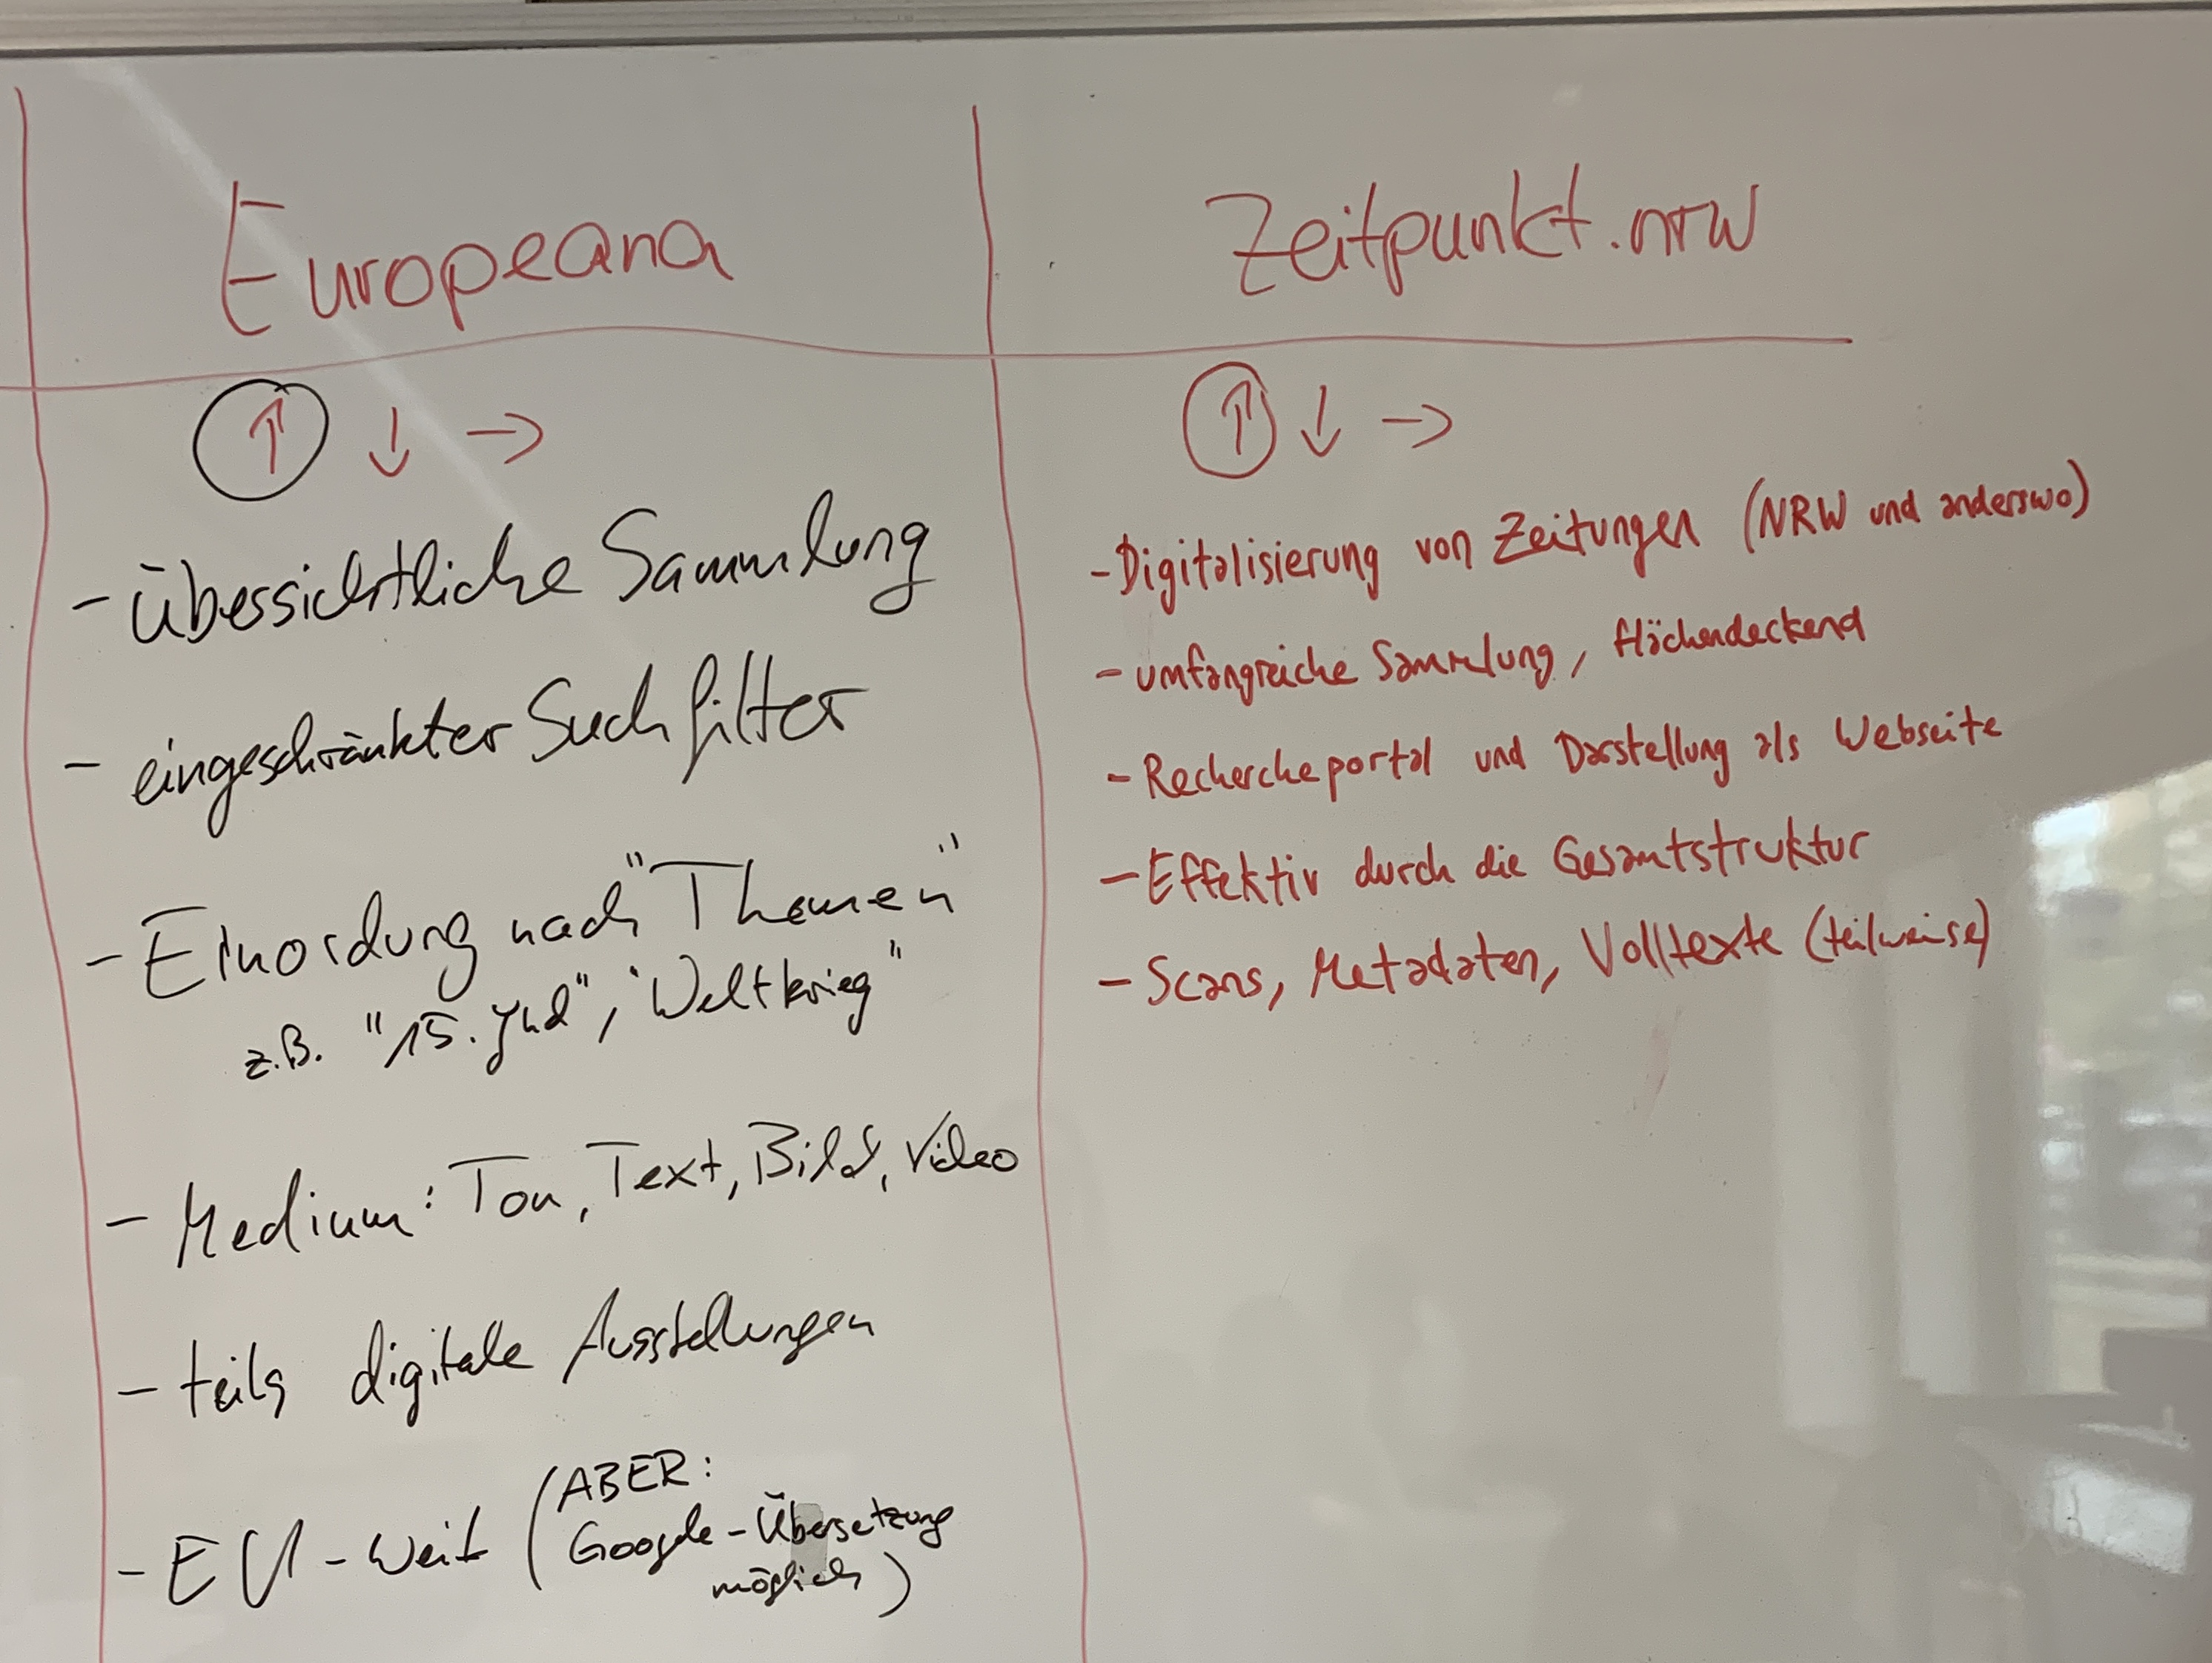 Europeana
↑ ↓ →
- übersichtliche Sammlung
- eingeschränkter Suchfilter
- Einordung nach "Themen"
z.B. "15. Jhd", "Weltkrieg"
- Medium: Ton, Text, Bild, Video
- teils digitale Ausstellungen
- EU-weit (ABER:
Google-Übersetzung
möglich)
Zeitpunkt.nrw
↑ ↓ →
- Digitalisierung von Zeitungen (NRW und anderswo)
- umfangreiche Sammlung, flächendeckend
- Rechercheportal und Darstellung als Webseite
- Effektiv durch die Gesamtstruktur
- Scans, Metadaten, Volltexte (teilweise)